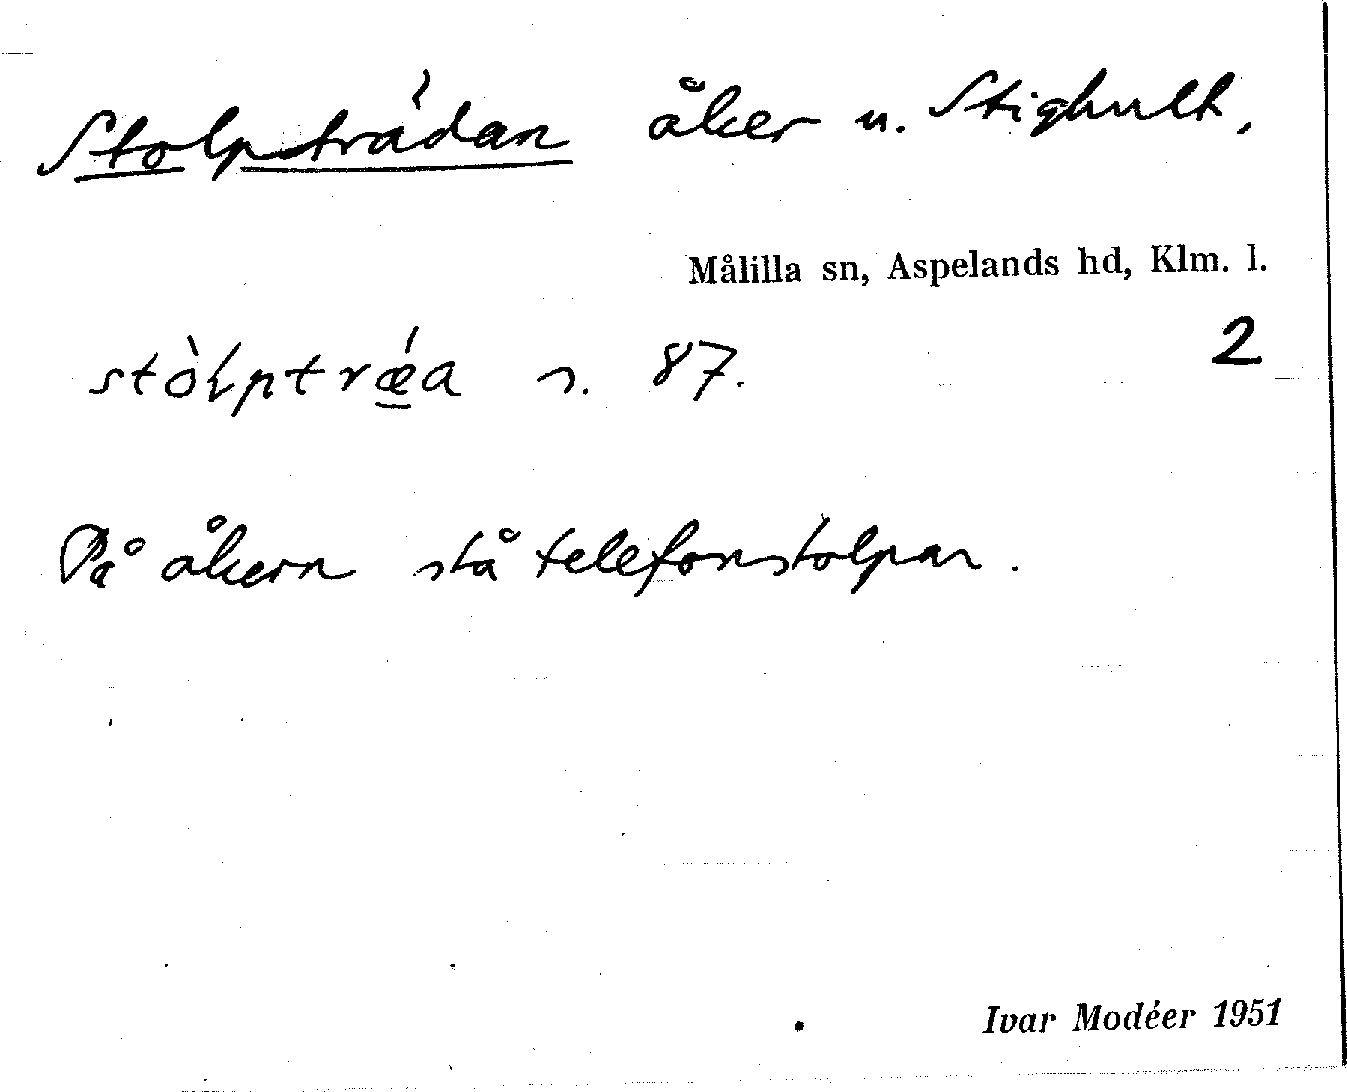 Stolpträdan åker u. Stighult,
Målilla sn, Aspelands hd, Klm. l.
2
stòlptrǽa s. 87.
På åkern stå telefonstolpar.
Ivar Modéer 1951